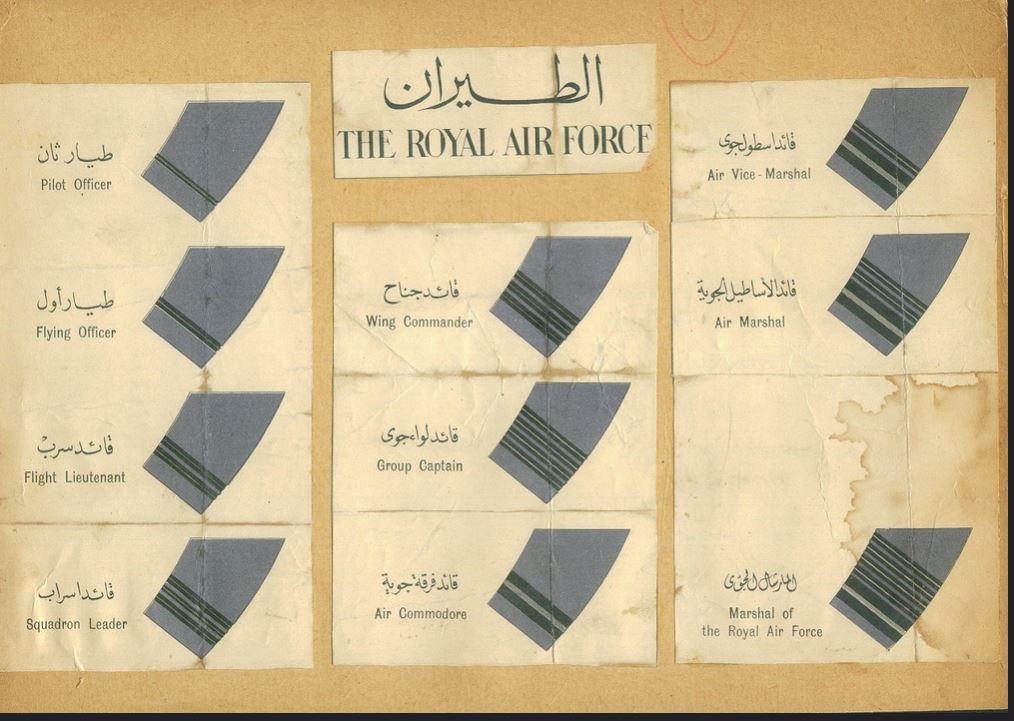 الطيران
THE ROYAL AIR FORCE
طيار ثان
Pilot Officer
طيار أول
Flying Officer
قائد سرب
Flight Lieutenant
قائد اسراب
Squadron Leader
قائد جناح
Wing Commander
قائد لواء جوى
Group Captain
قائد فرقة جوية
Air Commodore
قائد اسطول جوى
Air Vice-Marshal
قائد الأساطيل الجوية
Air Marshal
المارشال الجوى
Marshal of
the Royal Air Force